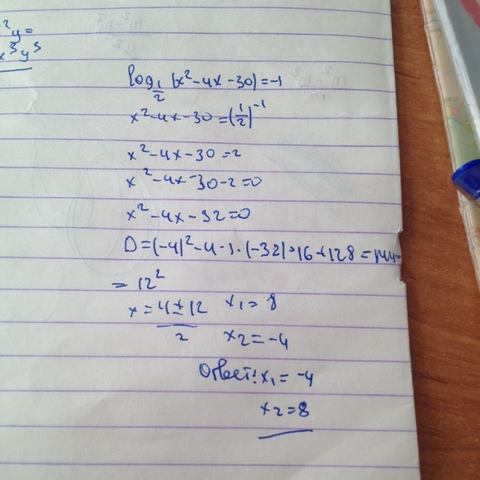 ²y=
x³y⁵
log₁/₂ (x²-4x-30)=-1
x²-4x-30=(1/2)⁻¹
x²-4x-30=2
x²-4x-30-2=0
x²-4x-32=0
D=(-4)²-4·1·(-32)=16+128=144=
=12²
x=(4±12)/2 x₁=8
x₂=-4
Ответ: x₁=-4
x₂=8